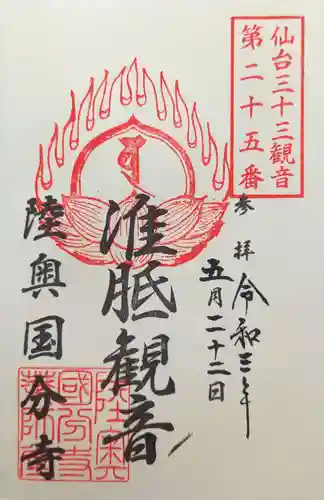 仙台三十三観音
第二十五番
参拝 令和三年
五月二十二日
准胝観音
陸奥国分寺
陸奥
國分寺
藥師堂